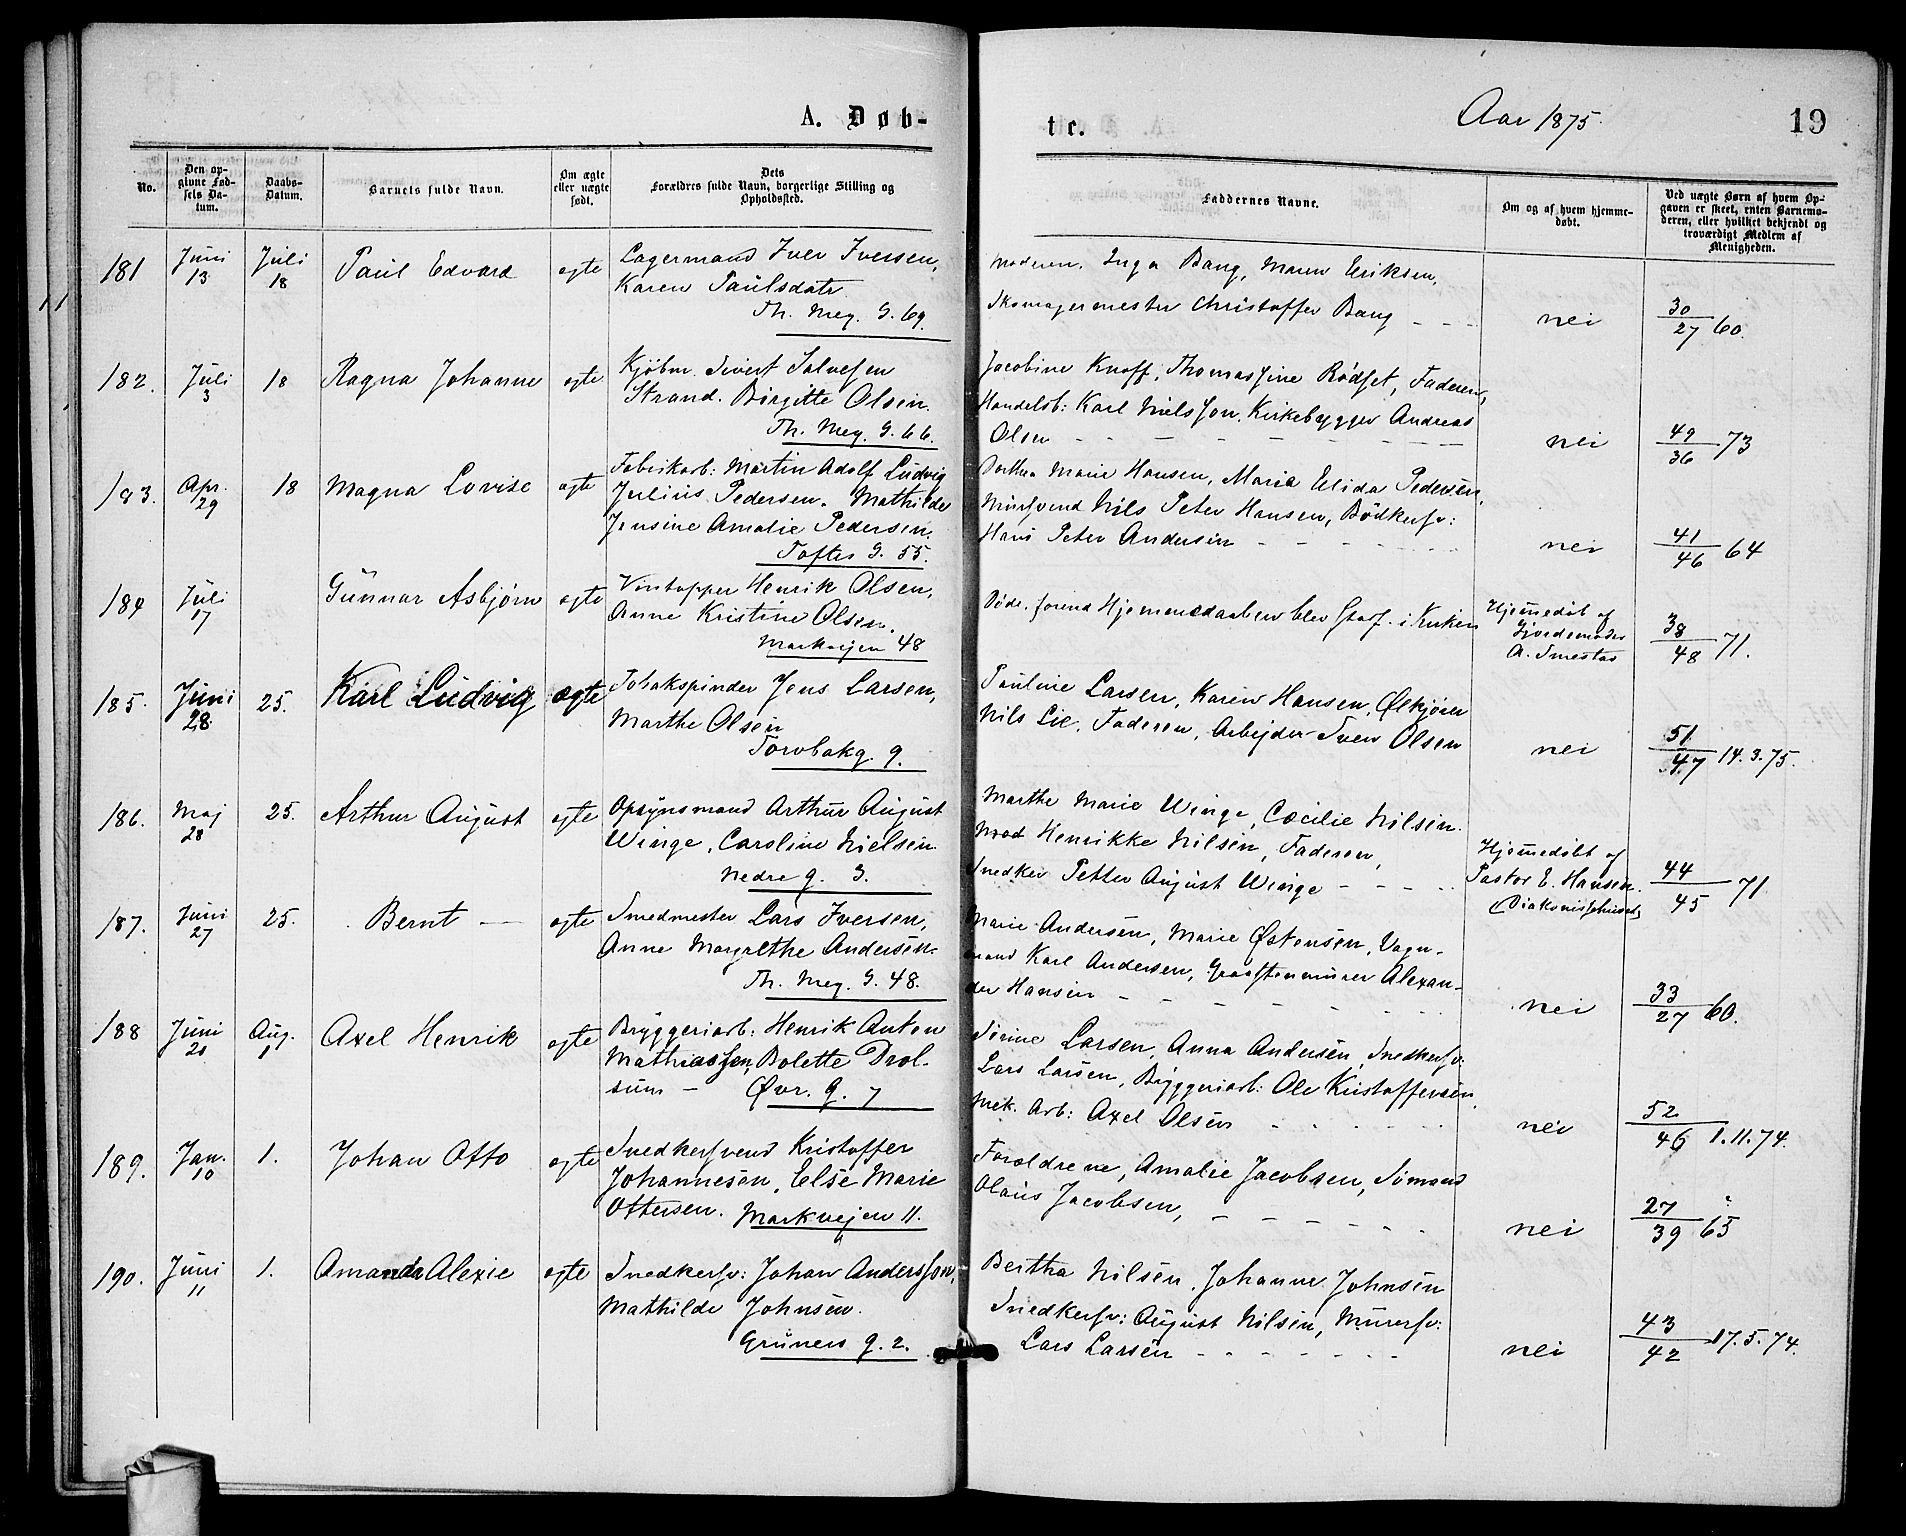 A. Døb-
No.
Den op-
givne Fød-
sels Da-
tum.
Daabs-
Datum.
Barnets fulde Navn.
Om ægte
eller uægte
født.
Dets
Forældres fulde Navn, borgerlige Stilling og
Opholdssted.
181
Juni
13
Juli
18
Paul Edvard
egte
Lagermand Iver Iversen,
Karen Paulsdatr.
Th. Mey. G. 69.
182.
Juli
3
18
Ragna Johanne
egte
Kjøbm. Sivert Salvesen
Strand. Birgitte Olsen.
Th. Mey. G. 66.
183.
Apr.
29
18
Magna Lovise
egte
Fabrikarb: Martin Adolf Ludvig
Julius Pedersen. Mathilde
Jensine Amalie Pedersen.
Toftes G. 55.
184
Juli
17
Gunnar Asbjørn
egte
Vintapper Henrik Olsen,
Anne Kristine Olsen.
Markvejen 48
185.
Juni
28
25.
Karl Ludvig
ægte
Tobakspinder Jens Larsen,
Marthe Olsen
Torvbakg. 9.
186.
Maj
28
25.
Arthur August
egte
Opsynsmand Arthur August
Winge, Caroline Nielsen.
Nedre g. 3.
187.
Juni
27
25.
Bernt —
egte
Smedmester Lars Iversen,
Anne Margrethe Andersen.
Th. Mey. G. 48.
188
Juni
20
Aug.
1
Axel Henrik
egte
Bryggeriarb: Henrik Anton
Mathiassen, Bolette Drol-
sum — Øvr. g. 7
189.
Jan.
10
1.
Johan Otto
egte
Snedkersvend Kristoffer
Johannesen, Else Marie
Ottersen. Markvejen 11.
190.
Juni
11
1.
Amanda Alexie
egte
Snedkersv: Johan Andersson,
Mathilde Johnsen.
Grüners g. 2.
te.
Aar 1875.
19
Faddernes Navne.
Om og af hvem hjemme-
døbt.
Ved uægte Børn af hvem Op-
gaven er skeet, enten Barnemo-
deren, eller hvilket bekjendt og
troværdigt Medlem af
Menigheden.
Moderen, Inga Bang, Maren Eriksen,
Skomagermester Christoffer Bang - - -
nei
30
27 60.
Jacobine Knoff, Thomassine Rødset, Faderen,
Handelsb: Karl Nielsson, Kirkebygger Andreas
Olsen - - - - - -
nei
49
36 73
Dorthea Marie Hansen, Marie Elida Pedersen,
Mursvend Nils Peter Hansen, Bødkersv:
Hans Peter Andersen - - - - - -
nei
41
46 64
Døde, forend Hjemmedaaben blev stadf. i Kirken
Hjemmedøbt af
Gjordemoder
A. Smestad
38
48 71.
Pauline Larsen, Karen Hansen, Ølkjører
Nils Lie, Faderen, Arbejder Sven Olsen
nei
51
47 14.3.75.
Marthe Marie Winge, Cæcilie Nilsen.
Mad Henrikke Nilsen, Faderen,
Snedker Petter August Winge - - - -
Hjemmedøbt af
Pastor E. Hansen.
(Diakonissehuset)
44
45 71
Marie Andersen, Marie Østensen, Vogn-
mand Karl Andersen, Graastenmurer Alexan-
der Hansen - - - - - -
nei
33
27 60.
Sørine Larsen, Anna Andersen, Snedkersv:
Lars Larsen, Bryggeriarb: Ole Kristoffersen,
Mek. Arb: Axel Olsen - - - - - -
nei
52
46 1.11.74.
Forældrene, Amalie Jacobsen, Sømand
Olaus Jacobsen, - - - - - -
nei
27
39 65
Bertha Nilsen, Johanne Johnsen
Snedkersv: August Nilsen, Murersv:
Lars Larsen - - - - - -
nei
43
42 17.5.74.